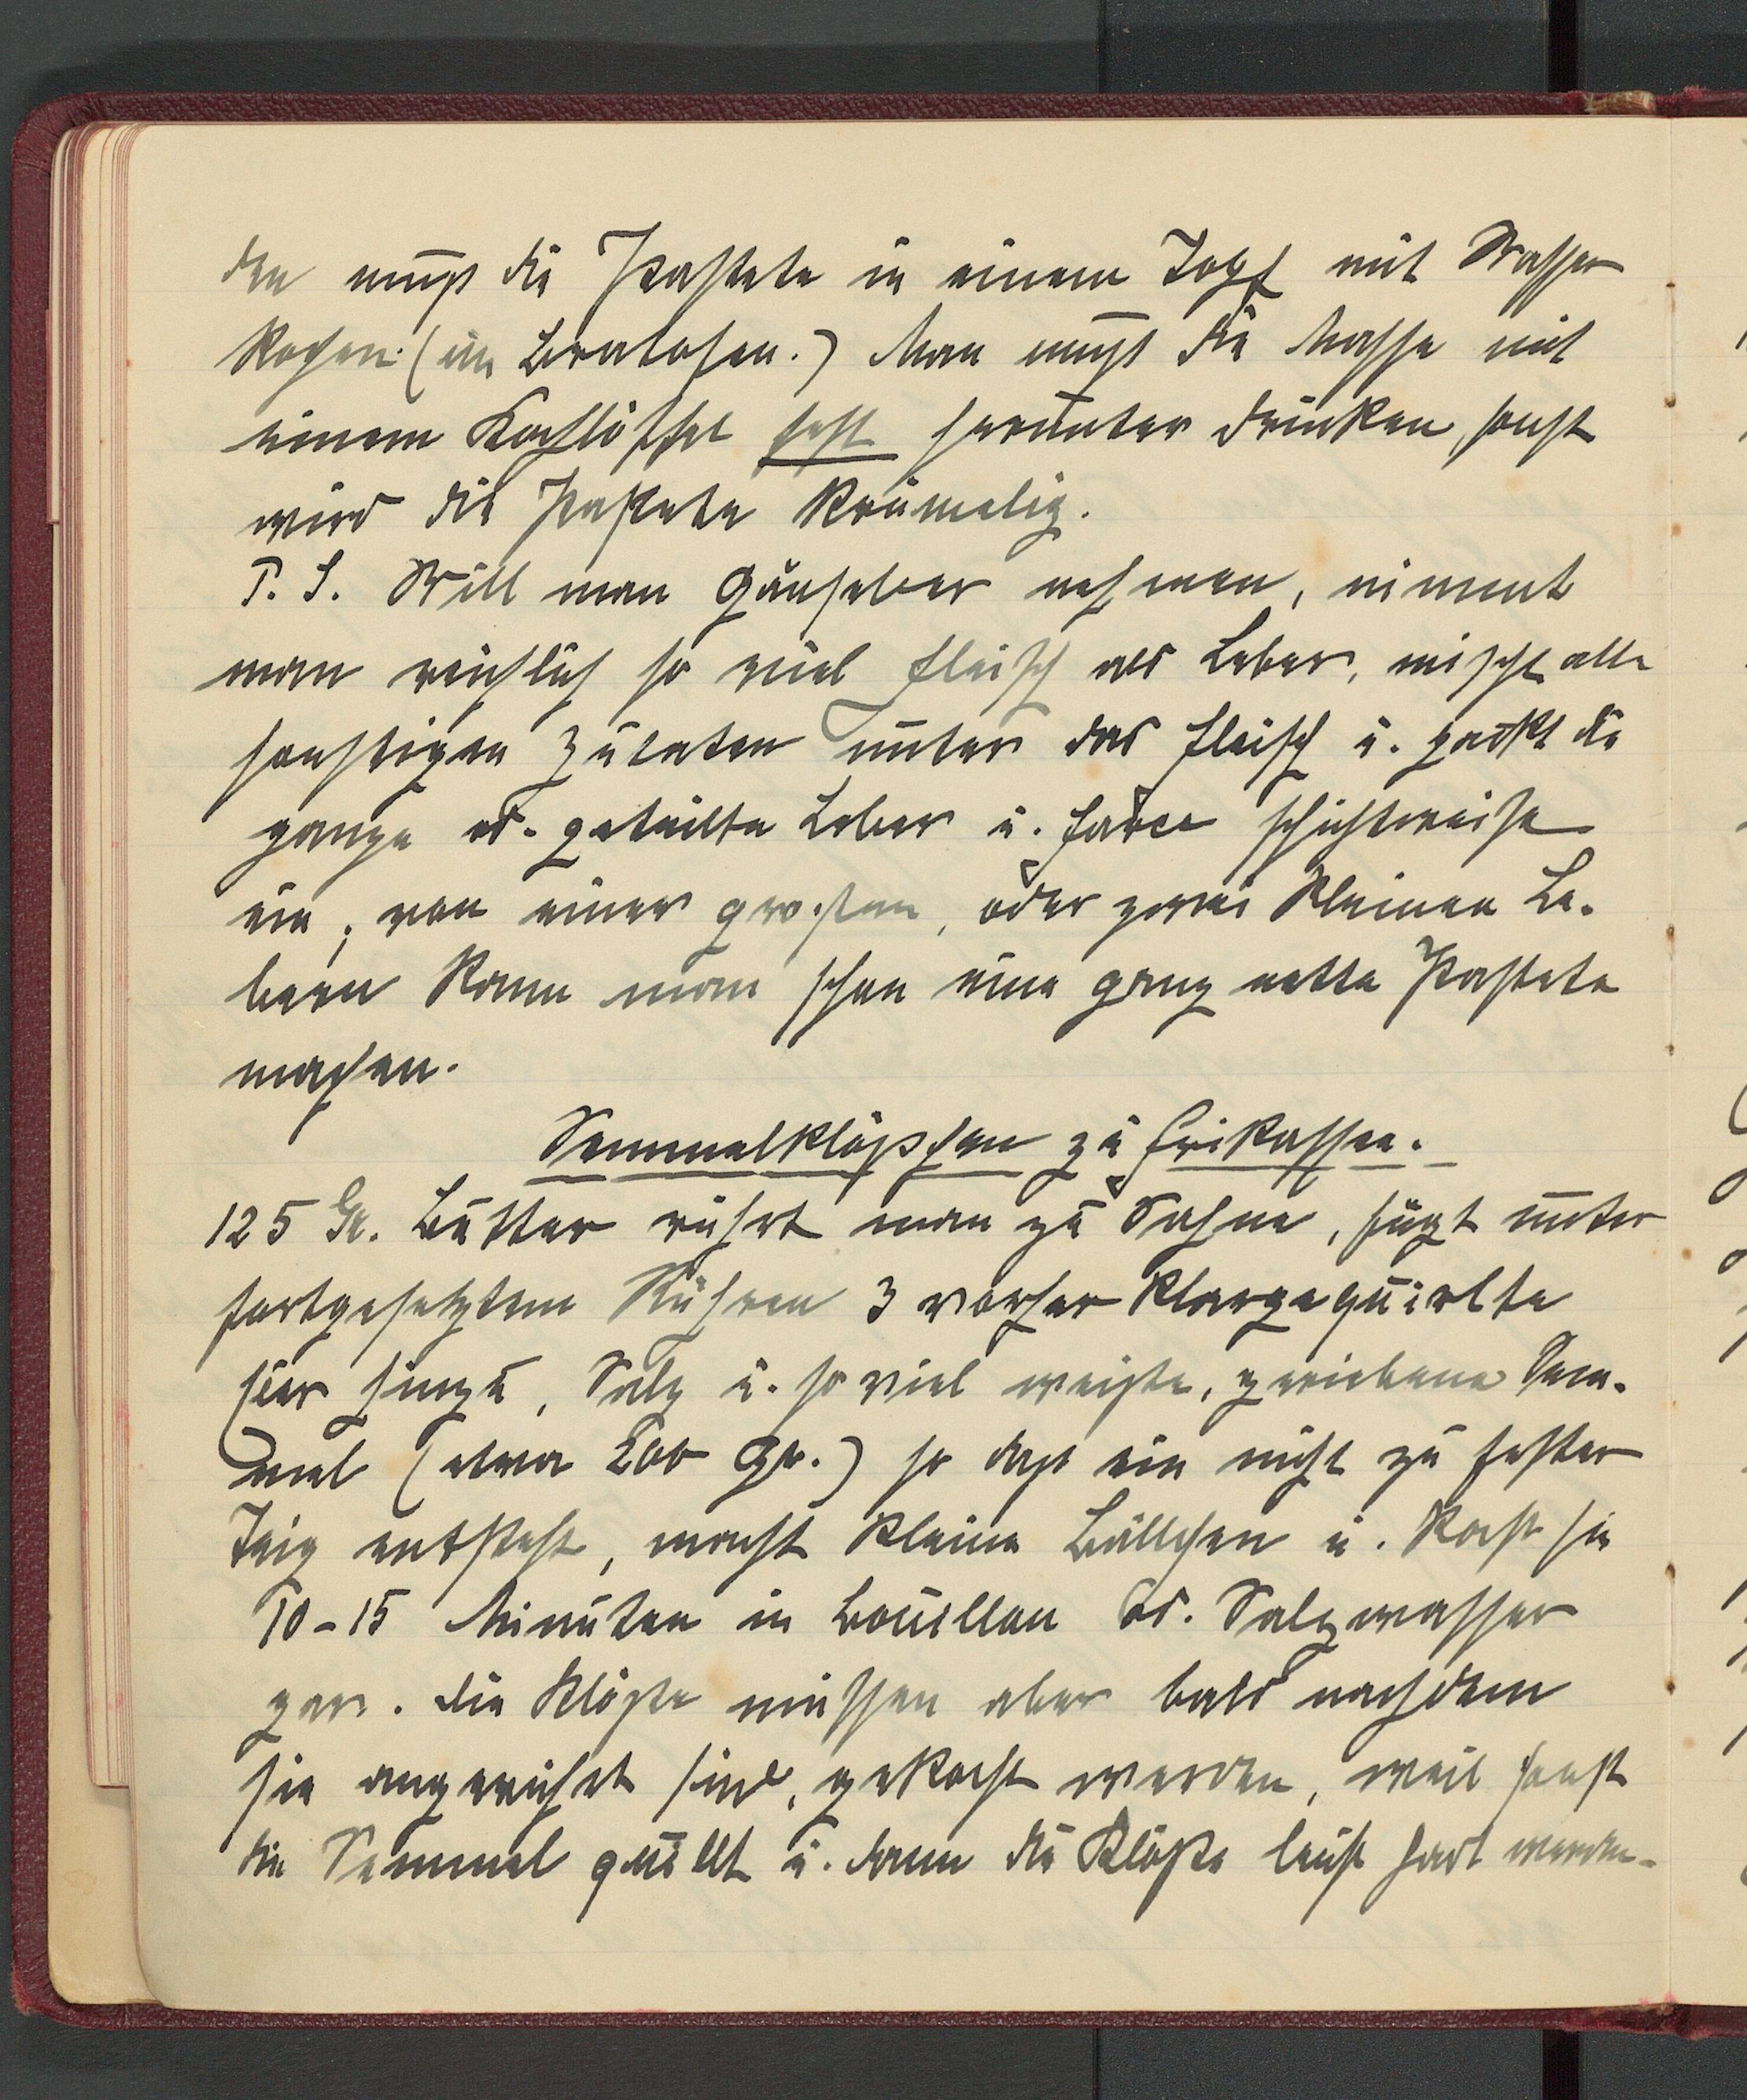 den muß die Pastete in einem Topf mit Wasser
kochen (im Bratofen.) Man muß die Masse mit
einem Kochlöffel fest herunter drücken, sonst
wird die Pastete krümelig.
P. S. Will man Gänseleber nehmen, nimmt
man reichlich so viel Fleisch als Leber, mischt alle
sonstigen Zutaten unter das Fleisch u. packt die
ganze od. geteilte Leber u. Farce schichtweise
ein; von einer großen, oder zwei kleinen Le-
bern kann man schon eine ganz nette Pastete
machen.
Semmelklößchen zu Frikassee.
125 Gr. Butter rührt man zu Sahne, fügt unter
fortgesetztem Rühren 3 vorher klargequirlte
Eier hinzu, Salz u. so viel weiße, geriebene Sem-
mel (etwa 200 Gr.) so daß ein nicht zu fester
Teig entsteht, macht kleine Bällchen u. kocht sie
10-15 Minuten in Bouillon od. Salzwasser
gar. Die Klöße müssen aber bald nachdem
sie angerührt sind, gekocht werden, weil sonst
die Semmel quillt u. dann die Klöße leicht hart werden.